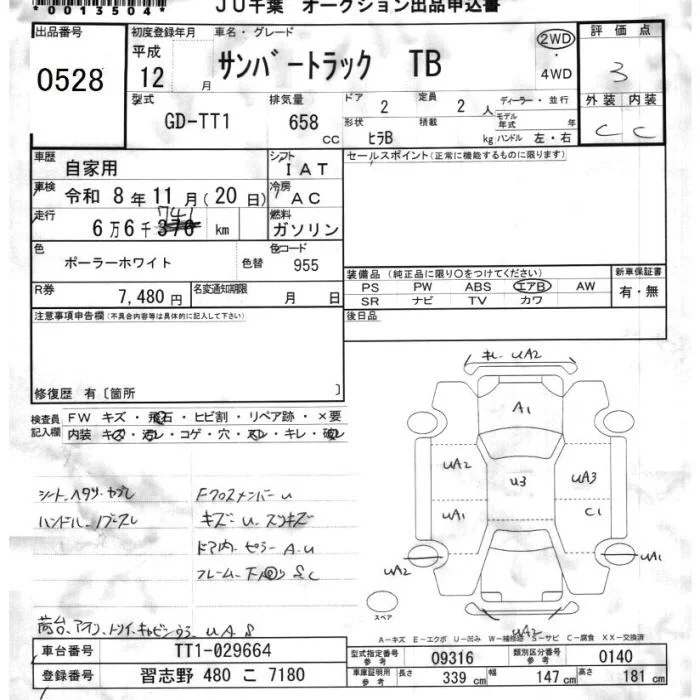 *0013504*
JU千葉 オークション出品申込書
出品番号 0528
初度登録年月 平成 12 月
車名・グレード サンバートラック TB
2WD・4WD
評価点 3
外装 C 内装 C
型式 GD-TT1
排気量 658 CC
ドア 2
定員 2 人
ディーラー・並行
モデル年式 年
形状 ヒラB
積載 kg
ハンドル 左・右
車歴 自家用
シフト IAT
セールスポイント(正常に機能するものに限ります)
車検 令和 8 年 11 月(20 日)
冷房 AC
走行 6万6千376 741 km
燃料 ガソリン
色 ポーラーホワイト 色替
色コード 955
装備品 (純正品に限り○をつけてください)
新車保証書 有・無
PS PW ABS エアB AW
SR ナビ TV カワ
R券 7,480 円
名変通知期限 月 日
後日品
注意事項申告欄(不具合内容等は具体的に記入して下さい)
修復歴 有〔箇所 〕
検査員記入欄
FW キズ・飛石・ヒビ割・リペア跡・×要
内装 キズ・汚レ・コゲ・穴・スレ・キレ・破レ
キレ. UA2
A1
UA2 U3 UA3
UA1 C1
UA2 UA1
UA2
スペア
シート.ヘタリ.ヤブレ
ハンドル.
Fクロスメンバーu
キズ・u.スリキズ
ドア内.ピラーA.u
フレーム.下回りS.C
荷台.アオリ. UAS
A-キズ E-エクボ U-凹み W-補修跡 S-サビ C-腐食 XX-交換済
車台番号 TT1-029664
登録番号 習志野 480 こ 7180
型式指定番号 参考 09316
類別区分番号 参考 0140
車庫証明用 参考 長さ 339 cm 幅 147 cm 高さ 181 cm